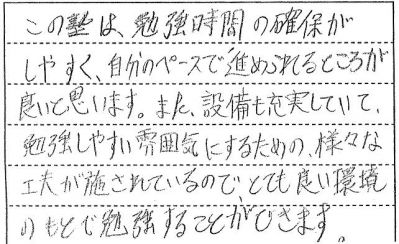 この塾は、勉強時間の確保が
しやすく、自分のペースで進められるところが
良いと思います。また、設備も充実していて、
勉強しやすい雰囲気にするための、様々な
工夫が施されているのでとても良い環境
のもとで勉強することができます。